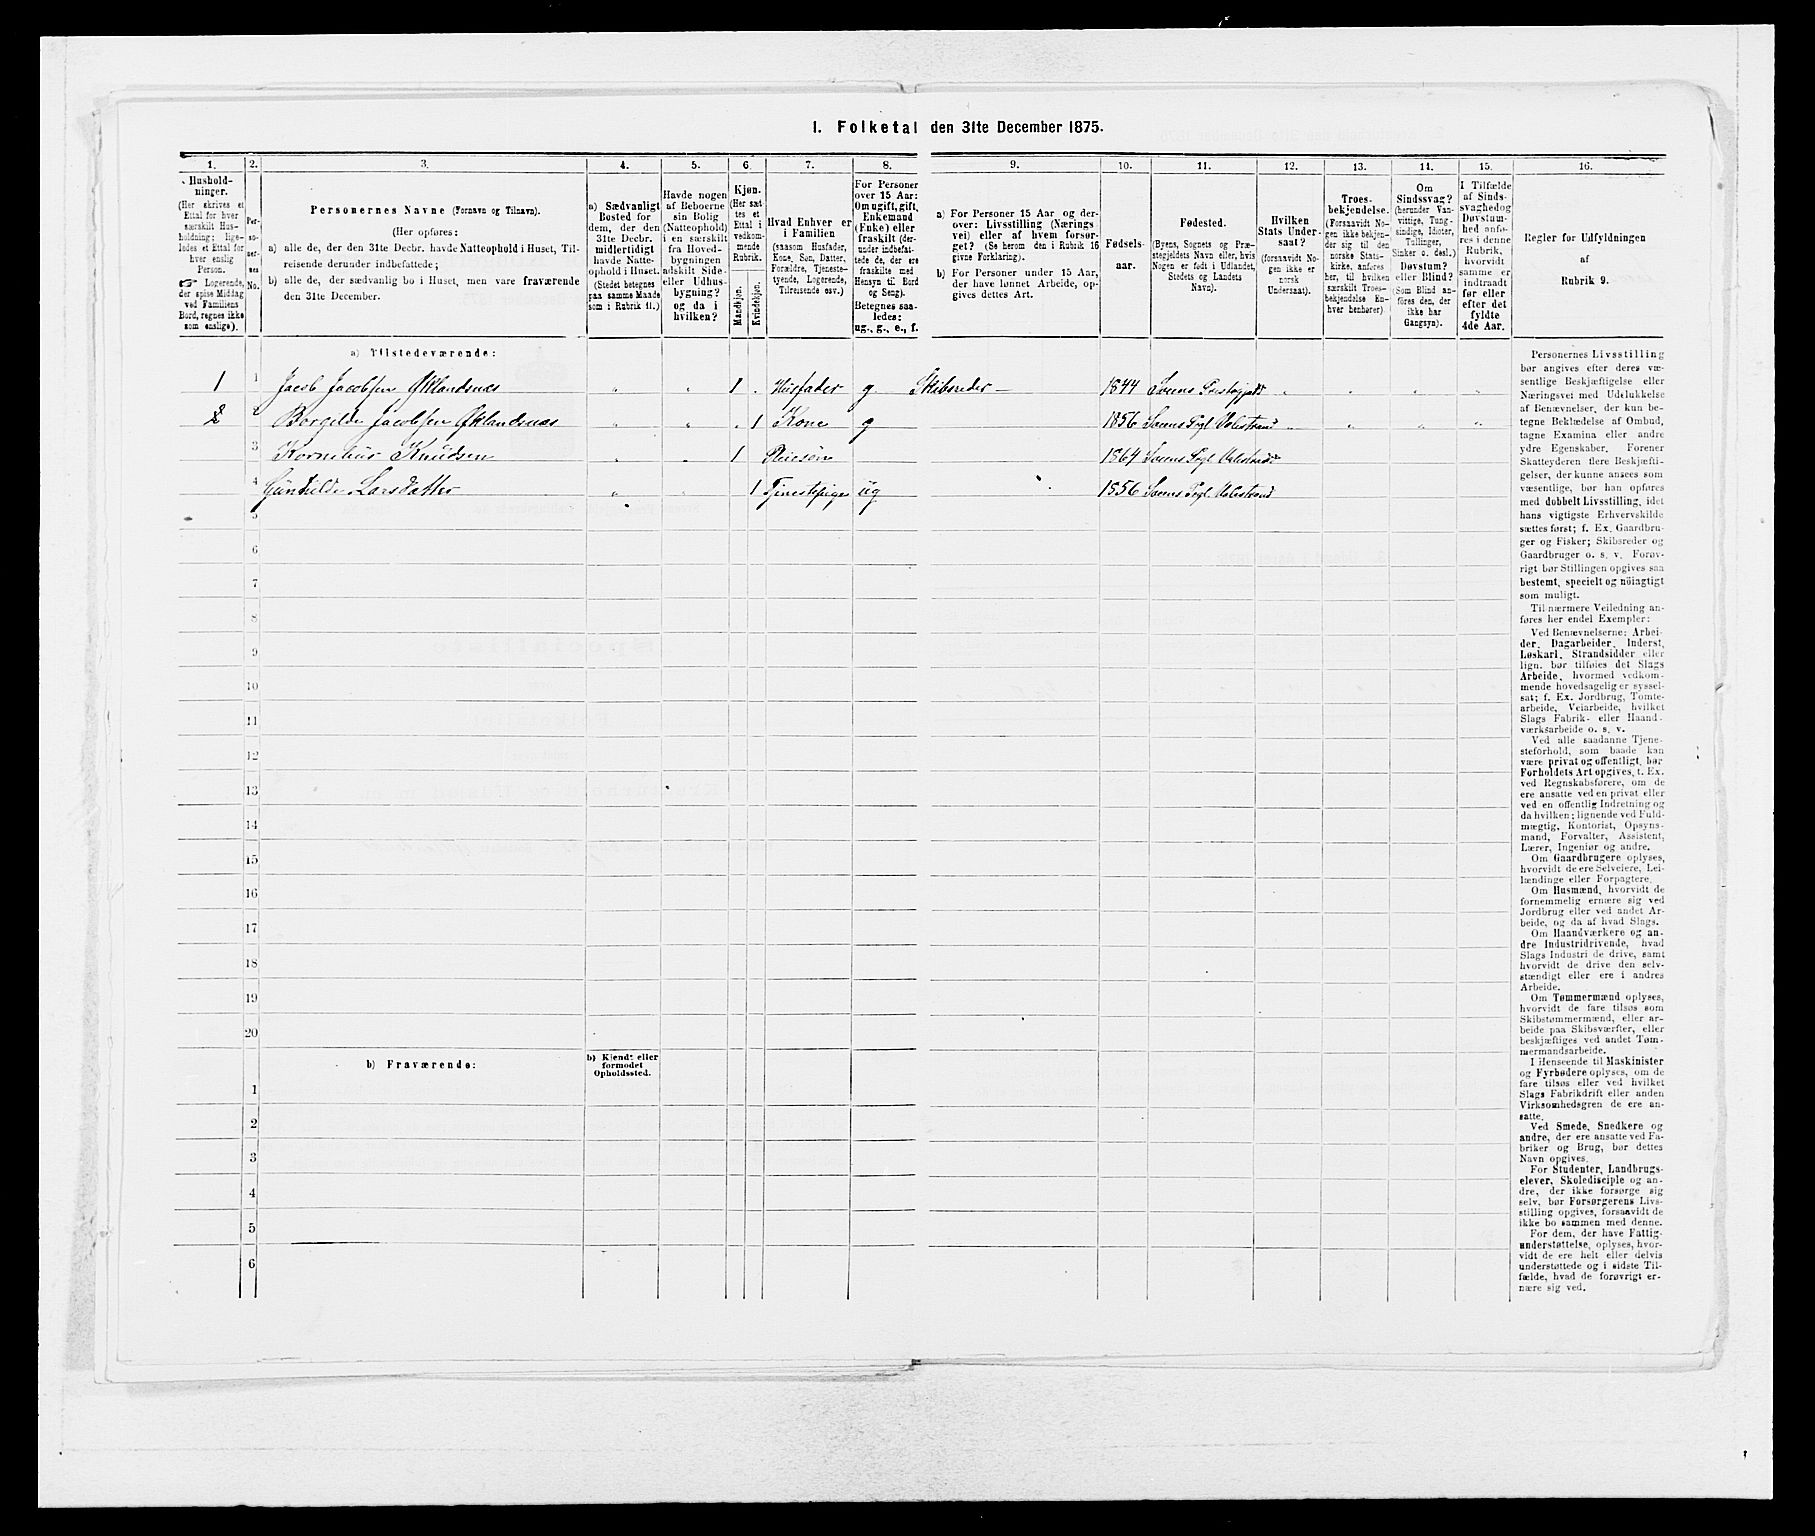 I. Folketal den 31te December 1875.
1.
2.
3.
4.
5.
6.
7.
8.
9.
10.
11.
12.
13.
14.
15.
16.
Hushold-
ninger.
(Her skrives et
Ettal for hver
særskilt Hus-
holdning; lige-
ledes et Ettal for
hver enslig
Person.
☞ Logerende,
der spise Middag
ved Familiens
Bord, regnes ikke
som enslige).
Per-
so-
ner-
nes
No.
Personernes Navne (Fornavn og Tilnavn).
(Her opføres:
a) alle de, der den 31te Decbr. havde Natteophold i Huset, Til-
reisende derunder indbefattede;
b) alle de, der sædvanlig bo i Huset, men vare fraværende
den 31te December.
a) Sædvanligt
Bosted for
dem, der den
31te Decbr.
midlertidigt
havde Natte-
ophold i Huset.
(Stedet betegnes
paa samme Maade
som i Rubrik 11.)
Havde nogen
af Beboerne
sin Bolig
(Natteophold)
i en særskilt
fra Hoved-
bygningen
adskilt Side-
eller Udhus-
bygning?
og da i
hvilken?
Kjøn.
(Her sæt-
tes et
Ettal i
vedkom-
mende
Rubrik.
Mandkjøn.
Kvindekjøn.
Hvad Enhver er
i Familien
(saasom Husfader,
Kone, Søn, Datter,
Forældre, Tjeneste-
tyende, Logerende,
Tilreisende osv.)
For Personer
over 15 Aar:
Om ugift, gift,
Enkemand
(Enke) eller
fraskilt (der-
under indbefat-
tede de, der ere
fraskilte med
Hensyn til Bord
og Seng).
Betegnes saa-
ledes:
ug., g., e., f.
a) For Personer 15 Aar og der-
over: Livsstilling (Nærings-
vei) eller af hvem forsør-
get? (Se herom den i Rubrik 16
givne Forklaring).
b) For Personer under 15 Aar,
der have lønnet Arbeide, op-
gives dettes Art.
Fødsels-
aar.
Fødested.
(Byens, Sognets og Præ-
stegjeldets Navn eller, hvis
Nogen er født i Udlandet,
Stedets og Landets
Navn).
Hvilken
Stats Under-
saat?
(forsaavidt No-
gen ikke er
norsk
Undersaat).
Troes-
bekjendelse.
(Forsaavidt No-
gen ikke bekjen-
der sig til den
norske Stats-
kirke, anføres
her, til hvilken
særskilt Troes-
bekjendelse En-
hver henhører)
Om
Sindssvag?
(herunder Van-
vittige, Idioter,
Tullinger,
Sinker o. desl.)
Døvstum?
eller Blind?
(Som Blind an-
føres den, der
ikke har
Gangsyn).
I Tilfælde
af Sinds-
svaghed og
Døvstum-
hed anfø-
res i denne
Rubrik,
hvorvidt
samme er
indtraadt
før eller
efter det
fyldte
4de Aar.
Regler for Udfyldningen
af
Rubrik 9.
a) Tilstedeværende:
1 1 Jacob Jacobsen Øklandsnæs „ „ 1 . Husfader g Skibsreder — 1844 „ „ „ „
2 2 Borgilde Jacobsen Øklandsnæs „ „ „ 1 Kone g 1856 Valestrand „ „ „ „
3 Kornelius Knudsen „ „ 1 Pleiesøn 1864 Valestrand
4 Gunhilde Larsdatter „ „ 1 Tjenestepige ug 1856 Valestrand
5
6
7
8
9
10
11
12
13
14
15
16
17
18
19
20
b) Fraværende:
b) Kjendt eller
formodet
Opholdssted.
1
2
3
4
5
6
Personernes Livsstilling
bør angives efter deres væ-
sentlige Beskjæftigelse eller
Næringsvei med Udelukkelse
af Benævnelser, der kun be-
tegne Beklædelse af Ombud,
tagne Examina eller andre
ydre Egenskaber. Forener
Skatteyderen flere Beskjæfti-
gelser, der kunne ansees som
væsentlige, bør han opføres
med dobbelt Livsstilling, idet
hans vigtigste Erhvervskilde
sættes først; f. Ex. Gaardbru-
ger og Fisker; Skibsreder og
Gaardbruger o. s. v. Forøv-
rigt bør Stillingen opgives saa
bestemt, specielt og nöiagtigt
som muligt.
Til nærmere Veiledning an-
føres her endel Exempler:
Ved Benævnelserne: Arbei-
der, Dagarbeider, Inderst,
Løskarl, Strandsidder eller
lign. bør tilføies det Slags
Arbeide, hvormed vedkom-
mende hovedsagelig er syssel-
sat; f. Ex. Jordbrug, Tomte-
arbeide, Veiarbeide, hvilket
Slags Fabrik- eller Haand-
værksarbeide o. s. v.
Ved alle saadanne Tjene-
steforhold, som baade kan
være privat og offentligt, bør
Forholdets Art opgives, t. Ex.
ved Regnskabsførere, om de
ere ansatte ved en privat eller
ved en offentlig Indretning og
da hvilken; lignende ved Fuld-
mægtig, Kontorist, Opsyns-
mand, Forvalter, Assistent,
Lærer, Ingeniør og andre.
Om Gaardbrugere oplyses,
hvorvidt de ere Selveiere, Lei-
lændinge eller Forpagtere.
Om Husmænd, hvorvidt de
fornemmelig ernære sig ved
Jordbrug eller ved andet Ar-
beide, og da af hvad Slags.
Om Haandværkere og an-
dre Industridrivende, hvad
Slags Industri de drive, samt
hvorvidt de drive den selv-
stændigt eller ere i andres
Arbeide.
Om Tømmermænd oplyses,
hvorvidt de fare tilsøs som
Skibstømmermænd, eller ar-
beide paa Skibsværfter, eller
beskjæftiges ved andet Tøm-
mermandsarbeide.
I Henseende til Maskinister
og Fyrbødere oplyses, om de
fare tilsøs eller ved hvilket
Slags Fabrikdrift eller anden
Virksomhedsgren de ere an-
satte.
Ved Smede, Snedkere og
andre, der ere ansatte ved Fa-
briker og Brug, bør dettes
Navn opgives.
For Studenter, Landbrugs-
elever, Skoledisciple og an-
dre, der ikke forsørge sig
selv, bør Forsørgerens Livs-
stilling opgives, forsaavidt de
ikke bo sammen med denne.
For dem, der have Fattig-
understøttelse, oplyses, hvor-
vidt de ere helt eller delvis
understøttede og i sidste Til-
fælde, hvad de forøvrigt er-
nære sig ved.